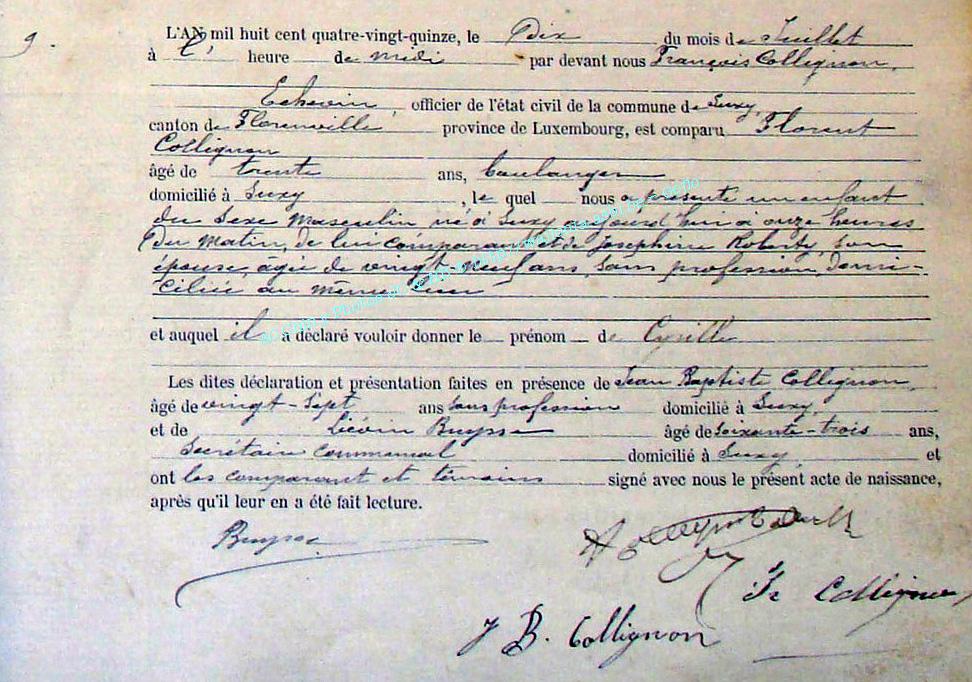 9.
L'AN mil huit cent quatre-vingt-quinze, le Dix du mois de Juillet
à l' heure de midi par devant nous François Collignon,
Echevin, officier de l'état civil de la commune de Suxy,
canton de Florenville, province de Luxembourg, est comparu Florent
Collignon
âgé de trente ans, boulanger
domicilié à Suxy, le quel nous a présenté un enfant
du sexe masculin né à Suxy aujourd'hui à onze heures
du matin, de lui comparant et de Joséphine Roberty, son
épouse, âgée de vingt neuf ans, sans profession, domi-
ciliée au même lieu
et auquel il a déclaré vouloir donner le prénom de Cyrille
Les dites déclaration et présentation faites en présence de Jean Baptiste Collignon,
âgé de vingt-sept ans sans profession domicilié à Suxy,
et de Liévin Buysse âgé de soixante-trois ans,
Secrétaire communal domicilié à Suxy, et
ont les comparant et témoins signé avec nous le présent acte de naissance,
après qu'il leur en a été fait lecture.
Buysse
Fr Collignon
J B. Collignon